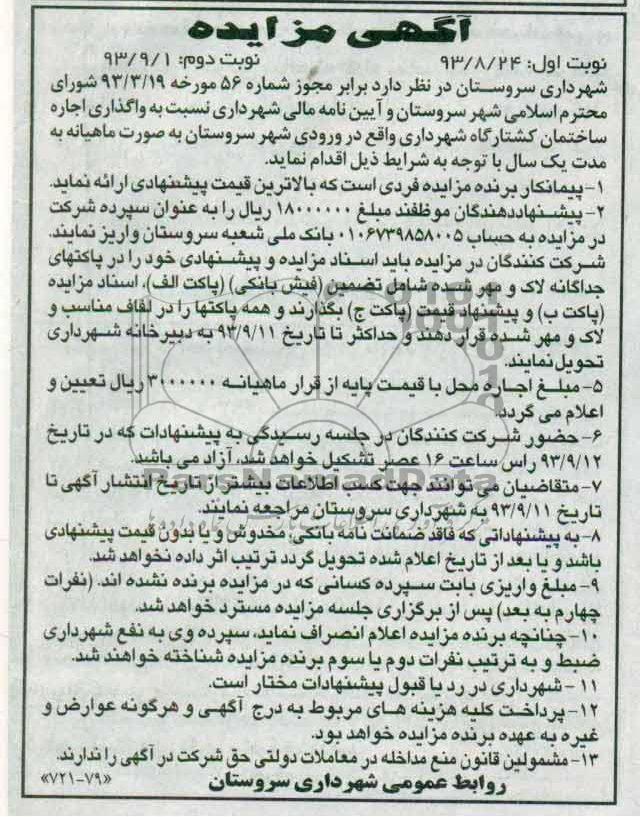 آگهی مزایده
نوبت اول: ۹۳/۸/۲۴ نوبت دوم: ۹۳/۹/۱
شهرداری سروستان در نظر دارد برابر مجوز شماره ۵۶ مورخه ۹۳/۳/۱۹ شورای
محترم اسلامی شهر سروستان و آیین نامه مالی شهرداری نسبت به واگذاری اجاره
ساختمان کشتارگاه شهرداری واقع در ورودی شهر سروستان به صورت ماهیانه به
مدت یک سال با توجه به شرایط ذیل اقدام نماید.
۱- پیمانکار برنده مزایده فردی است که بالاترین قیمت پیشنهادی ارائه نماید.
۲- پیشنهاددهندگان موظفند مبلغ ۱۸۰۰۰۰۰۰ ریال را به عنوان سپرده شرکت
در مزایده به حساب ۰۱۰۶۷۳۹۸۵۸۰۰۵ بانک ملی شعبه سروستان واریز نمایند.
شرکت کنندگان در مزایده باید اسناد مزایده و پیشنهادی خود را در پاکتهای
جداگانه لاک و مهر شده شامل تضمین (فیش بانکی) (پاکت الف)، اسناد مزایده
(پاکت ب) و پیشنهاد قیمت (پاکت ج) بگذارند و همه پاکتها را در لفاف مناسب و
لاک و مهر شده قرار دهند و حداکثر تا تاریخ ۹۳/۹/۱۱ به دبیرخانه شهرداری
تحویل نمایند.
۵- مبلغ اجاره محل با قیمت پایه از قرار ماهیانه ۳۰۰۰۰۰۰ ریال تعیین و
اعلام می گردد.
۶- حضور شرکت کنندگان در جلسه رسیدگی به پیشنهادات که در تاریخ
۹۳/۹/۱۲ راس ساعت ۱۶ عصر تشکیل خواهد شد، آزاد می باشد.
۷- متقاضیان می توانند جهت کسب اطلاعات بیشتر از تاریخ انتشار آگهی تا
تاریخ ۹۳/۹/۱۱ به شهرداری سروستان مراجعه نمایند.
۸- به پیشنهاداتی که فاقد ضمانت نامه بانکی، مخدوش و یا بدون قیمت پیشنهادی
باشد و یا بعد از تاریخ اعلام شده تحویل گردد ترتیب اثر داده نخواهد شد.
۹- مبلغ واریزی بابت سپرده کسانی که در مزایده برنده نشده اند. (نفرات
چهارم به بعد) پس از برگزاری جلسه مزایده مسترد خواهد شد.
۱۰- چنانچه برنده مزایده اعلام انصراف نماید، سپرده وی به نفع شهرداری
ضبط و به ترتیب نفرات دوم یا سوم برنده مزایده شناخته خواهند شد.
۱۱- شهرداری در رد یا قبول پیشنهادات مختار است.
۱۲- پرداخت کلیه هزینه های مربوط به درج آگهی و هرگونه عوارض و
غیره به عهده برنده مزایده خواهد بود.
۱۳- مشمولین قانون منع مداخله در معاملات دولتی حق شرکت در آگهی را ندارند.
روابط عمومی شهرداری سروستان «۷۲۱-۷۹»
ParsNamadData